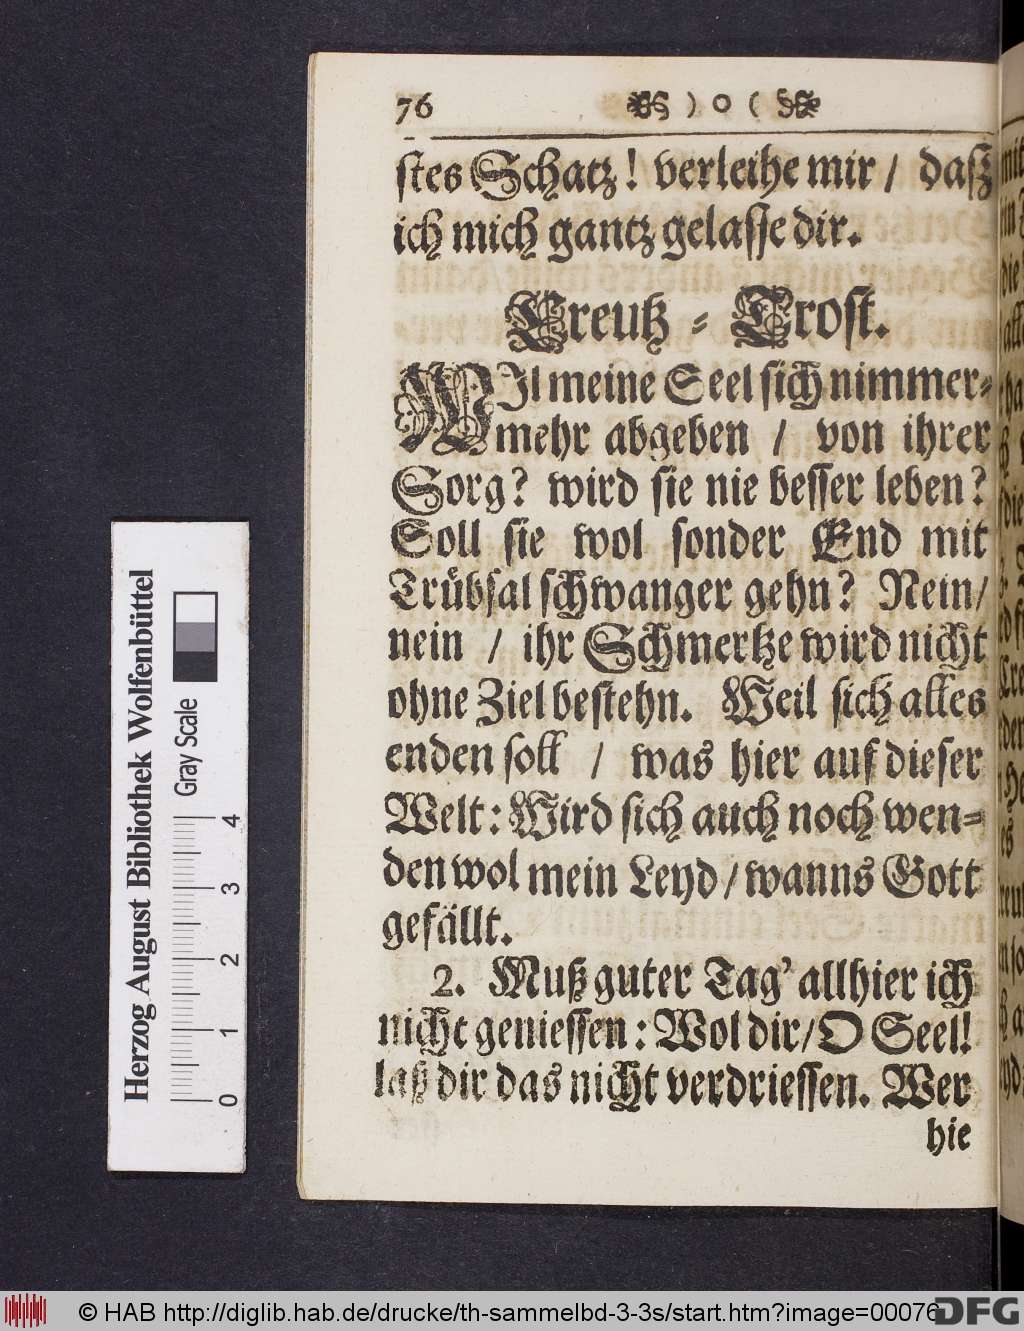 76 ) o (
stes Schatz! verleihe mir / daß
ich mich gantz gelasse dir.
Creutz - Trost.
WIl meine Seel sich nimmer-
mehr abgeben / von ihrer
Sorg? wird sie nie besser leben?
Soll sie wol sonder End mit
Trübsal schwanger gehn? Nein/
nein / ihr Schmertze wird nicht
ohne Ziel bestehn. Weil sich alles
enden soll / was hier auf dieser
Welt: Wird sich auch noch wen-
den wol mein Leyd / wanns Gott
gefällt.
2. Muß guter Tag' allhier ich
nicht geniessen: Wol dir/ O Seel!
laß dir das nicht verdriessen. Wer
hie
Herzog August Bibliothek Wolfenbüttel
Gray Scale
0 1 2 3 4
© HAB http://diglib.hab.de/drucke/th-sammelbd-3-3s/start.htm?image=00076
DFG